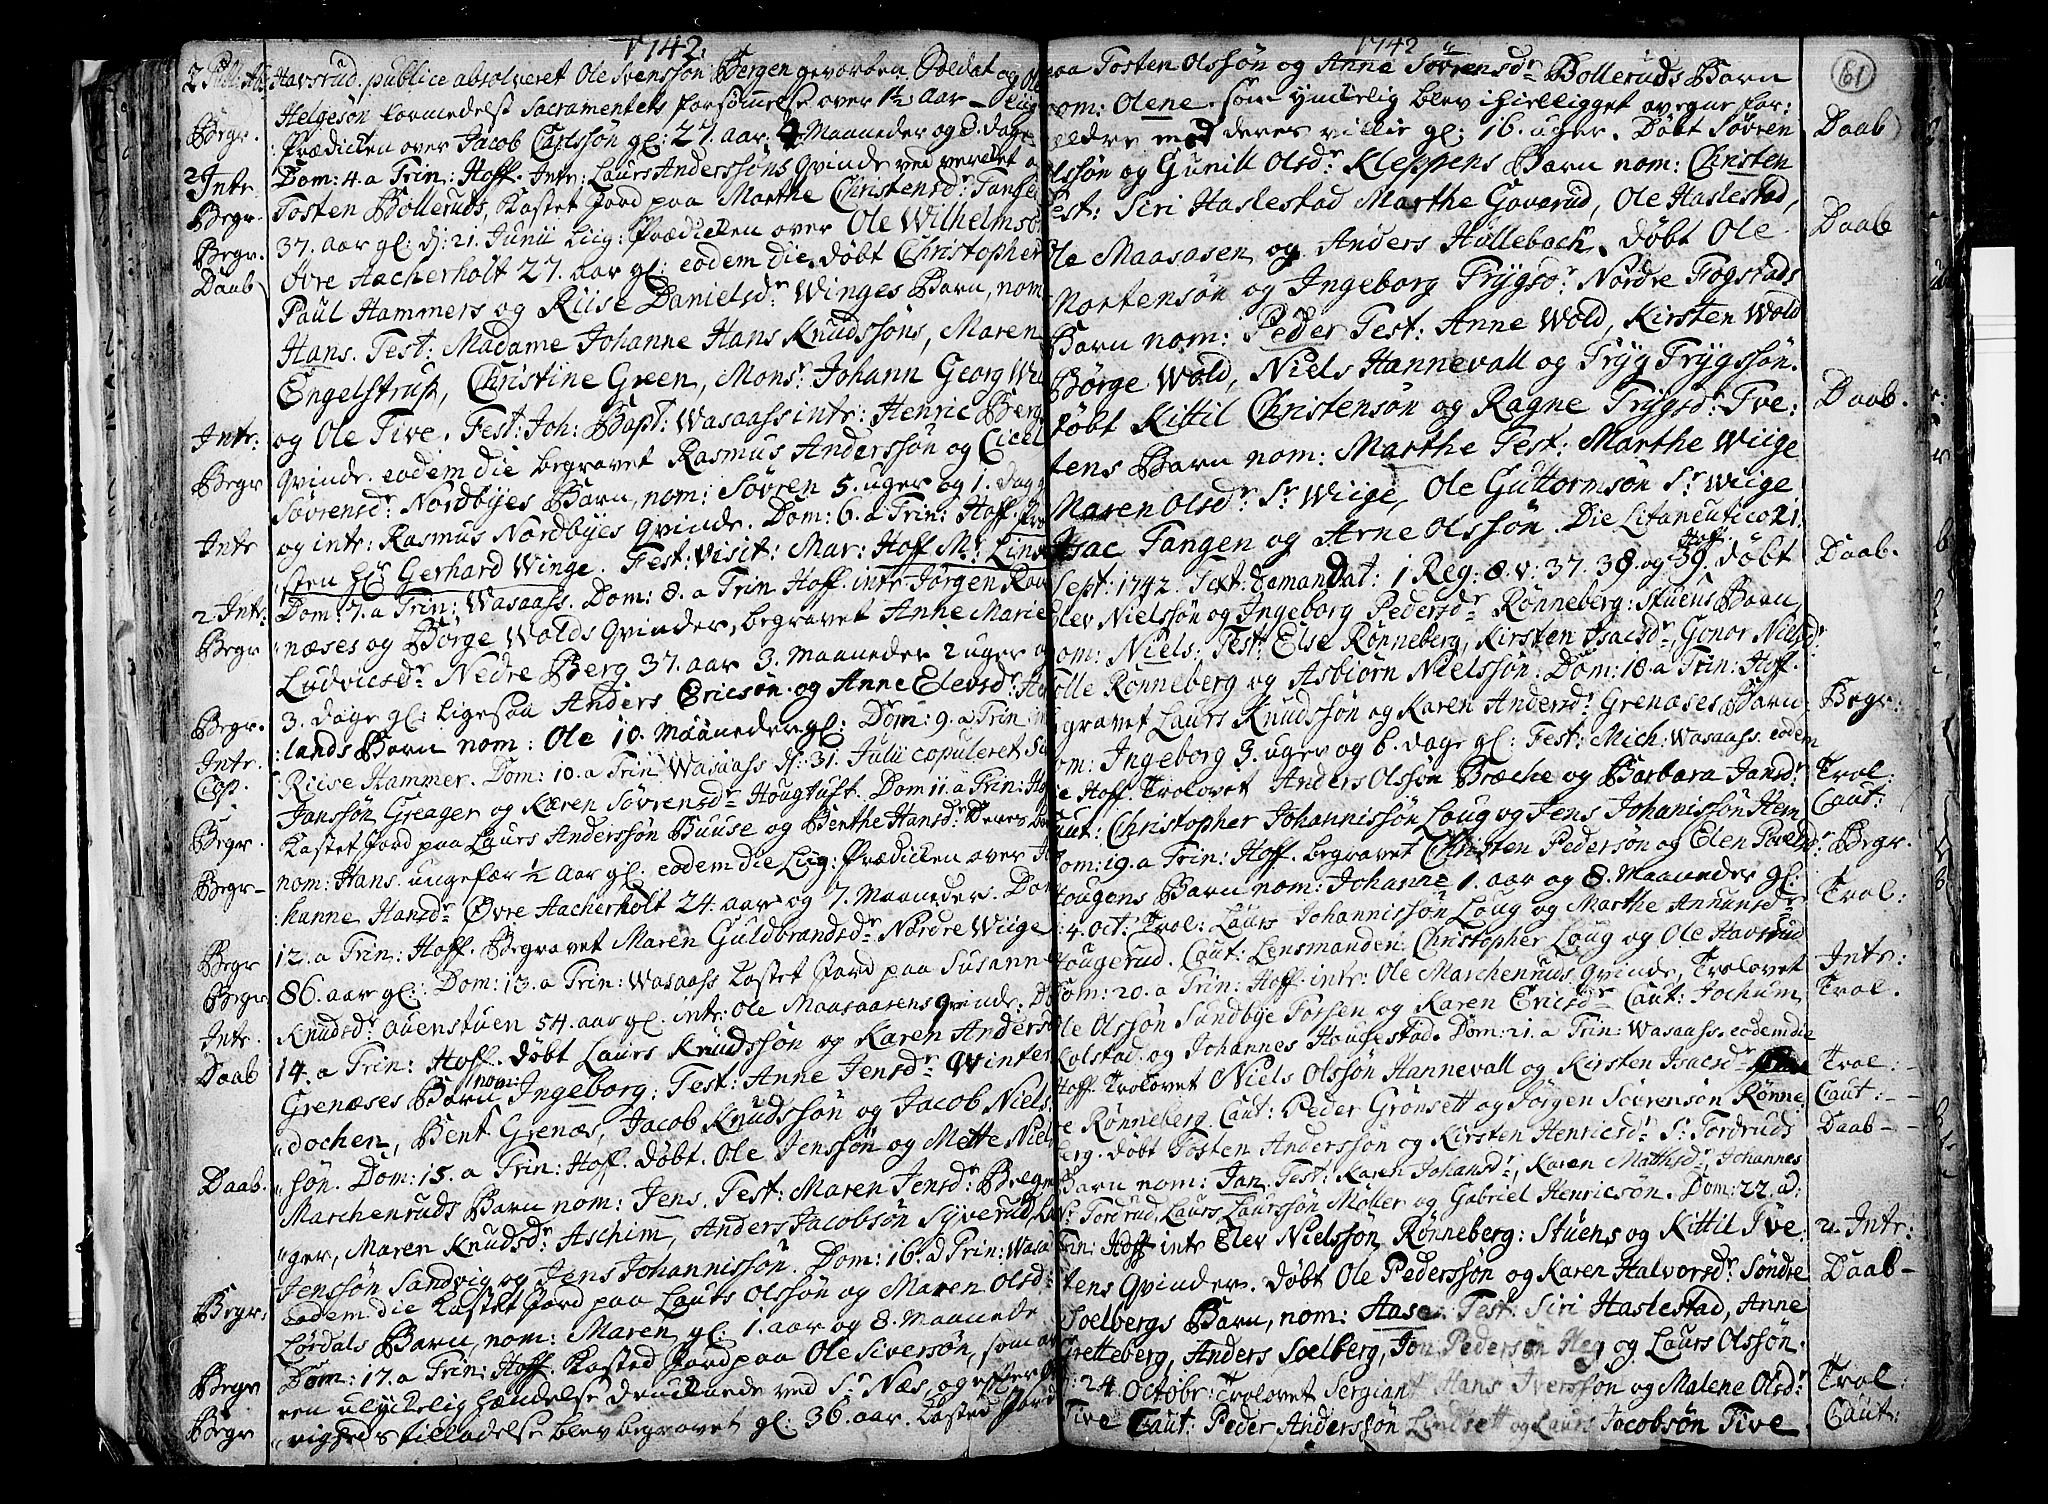 1742.
2 Publ: Abs: Havsrud. publice absolveret Ole Svenssøn Bergen gevorben Soldat og Ole
Helgesøn formedelst Sacramentets forsømmelse over 1½ Aar - Liig
Begr. Prædicken over Jacob Carlssøn gl: 27. aar, 4 Maaneder og 3. dage
2 Intr Dom: 4. a Trin: Hoff. Intr: Laurs Anderssøns Qvinde ved verelset
Begr. Tosten Bolleruds, Kastet Jord paa Marthe Christensdr. Tangen
Begr. 37. aar gl: d: 21. Junii Liig: Prædicken over Ole Wilhelmsø
Daab Øvre Aacherholt 27. aar gl: eodem die døbt Christopher
Paul Hammers og Riise Danielsdr. Winges Barn, nom
Hans. Test: Madame Johanne Hans Knudssøns, Maren
Engelstrup, Christine Green, Monsr. Johann Georg Wu
Intr: og Ole Tive. Fest: Joh: Bapt: Wasaass intr: Henric Berg
Begr Qvinde. eodem die begravet Rasmus Anderssøn og Cicel
Søvrensdr. Nordbyes Barn, nom: Søvren 5. uger og 1. dag g
Intr og intr: Rasmus Nordbyes Qvinde. Dom: 6. a Trin: Hoff.
sten Hr. Gerhard Winge. Fest: Visit: Mar: Hoff
2 Intr: Dom: 7. a Trin: Wasaass. Dom: 8. a Trin Hoff. intr Jørgen Rav
Begr næses og Børge Wolds Qvinder, begravet Anne Marie
Ludvicsdr. Nedre Berg 37. aar 3. Maaneder 2 uger
Begr. 3. dage gl: ligesaa Anders Ericsøn og Anne Elevsdr.
Intr. lands Barn nom: Ole 10. Maaneder gl: Dom: 9. a Trin
Cop. Riise Hammer. Dom: 10. a Trin Wasaass d: 31. Julii copuleret
Janssøn Greager og Karen Søvrensdr. Hougtuft. Dom 11. a Trin: Ho
Begr. Kastet Jord paa Laurs Anderssøn Buuse og Benthe Hansdr. Deres
Begr- nom: Hans. ungefær ½ Aar gl. eodem die Liig: Prædicken over Jo
hanne Hansdr. Øvre Aacherholt 24. aar og 7. Maaneder. Dom
Begr 12. a Trin: Hoff. Begravet Maren Guldbrandsdr. Nordre Wiige
Begr. 86. aar gl: Dom: 13. a Trin: Wasaass Kastet Jord paa Susanne
Intr. Knudsdr. auenstuen 54. aar gl. intr: Ole Maasaasens Qvinde: Do
Daab 14. a Trin: Hoff. døbt Laurs Knudssøn og Karen Anders
Grenæses Barn nom: Ingeborg: Test: Anne Jensdr. Winter
dochen, Bent Grenæs, Jacob Knudssøn og Jacob Niels
Daab. søn. Dom: 15. a Trin: Hoff. døbt. Ole Jenssøn og Mette Niels
Marchenruds Barn nom: Jens. Test: Maren Jensdr.
ger, Maren Knudsdr. Aschim, Anders Jacobsøn Syverud,
Jenssøn Sandvig og Jens Johannissøn. Dom: 16. a Trin: Wasa
Begr. eodem die Kastet Jord paa Laurs Olssøn og Maren Olsd
Lørdals Barn, nom: Maren gl: 1. aar og 8. Maanede
Begr Dom: 17. a Trin: Hoff. Kasted Jord paa Ole Siversøn, som
een ulyckelig hændelse druknede ved Sr. Næs, og efter
Begr righeds tilladelse blev begravet gl: 36. aar. Kasted Jord
1742
61
paa Tosten Olssøn og Anne Søvrensdr. Bolleruds Barn
nom: Olene som ynkelig blev ihielligget av egne for:
Daab ældre mod deres villie gl: 16. uger. Døbt Søvren
Olssøn og Gunill Olsdr. Kleppens Barn nom: Christen
Test: Siri Haslestad Marthe Goverud, Ole Haslestad,
Daab Ole Maasasen og Anders Hollebach. døbt Ole
Mortensøn og Ingeborg Trygsdr. Nordre Fogstads
Barn nom: Peder Test: Anne Wold, Kirsten Wold
Børge Wold, Niels Hannevall og Tryg Trygssøn.
Daab. døbt Kittil Christensøn og Ragne Trygsdr. Tve:
tens Barn nom: Marthe Test: Marthe Wiige
Maren Olsdr. Sr. Wiige, Ole Guttormsøn Sr. Wiige
Isac Tangen og Arne Olssøn. Die Litaneutico 21.
Daab. Sept: 1742. Text: demandat: 1 Reg: 8. v: 37. 38. og 39. Hoff. døbt
Elev Nielssøn og Ingeborg Pedersdr. Rønneberg: Stuens Barn
nom: Niels. Test: Else Rønneberg, Kirsten Isacsdr. Gonor Nielsdr.
Rolle Rønneberg og Asbiørn Nielssøn. Dom: 18. a Trin: Hoff.
Begr: begravet Laurs Knudssøn og Karen Andersdr. Grenæses Barn
nom: Ingeborg 3. uger og 6. dage gl: Fest: Mich: Wasaass. eodem
Trol: die Hoff. Trolovet Anders Olssøn Bræche og Barbara Jansdr.
Caut: Caut: Christopher Johannissøn Loug og Jens Johanissøn Hem
Begr. Dom: 19. a Trin: Hoff. begravet Christen Pedersøn og Elen
Hougens Barn nom: Johanne 1. aar og 8. Maaneder gl:
Trol: d: 4. Oct: Trol: Laurs Johannissøn Loug og Marthe Annunsdr.
Hougerud. Caut: Lensmanden Christopher Loug og Ole Havsrud
Intr: Dom: 20. a Trin: Hoff. intr: Ole Marchenruds Qvinde, Trolovet
Trol. Ole Olssøn Sundbye Forsen og Karen Ericsdr. Caut: Jochum
Kolstad og Johannes Hougestad. Dom: 21. a Trin: Wasaass. eodem die
Trol: Hoff. Trolovet Niels Olssøn Hannevall og Kirsten Isacsdr.
Caut: re Rønneberg. Caut: Peder Grønsett og Jørgen Søvrensøn Rønne
Daab berg. døbt Tosten Anderssøn og Kirsten Henricsdr. Sr. Tordruds
Barn nom: Jan. Test: Karen Johansdr., Karen Mathisdr., Johannes
Sr. Tordrud, Laurs Laurssøn Møller og Gabriel Henricsøn. Dom: 22. a:
2 Intr: Trin: Hoff intr Elev Nielssøn Rønneberg: Stuens og Kittil Tve
Daab- tens Qvinder. døbt Ole Pederssøn og Karen Halvorsdr. Søndre
Soelbergs Barn, nom: Aase. Test: Siri Haslestad, Anne
Gretteberg, Anders Soelberg, Jon Pedersøn og Laurs Olssøn.
Trol: d: 24. Octobr: Trolovet Sergiant Hans Iverssøn og Malene Olsdr.
Caut: Tive Caut: Peder Anderssøn Lindsett og Laurs Jacobsøn Tive